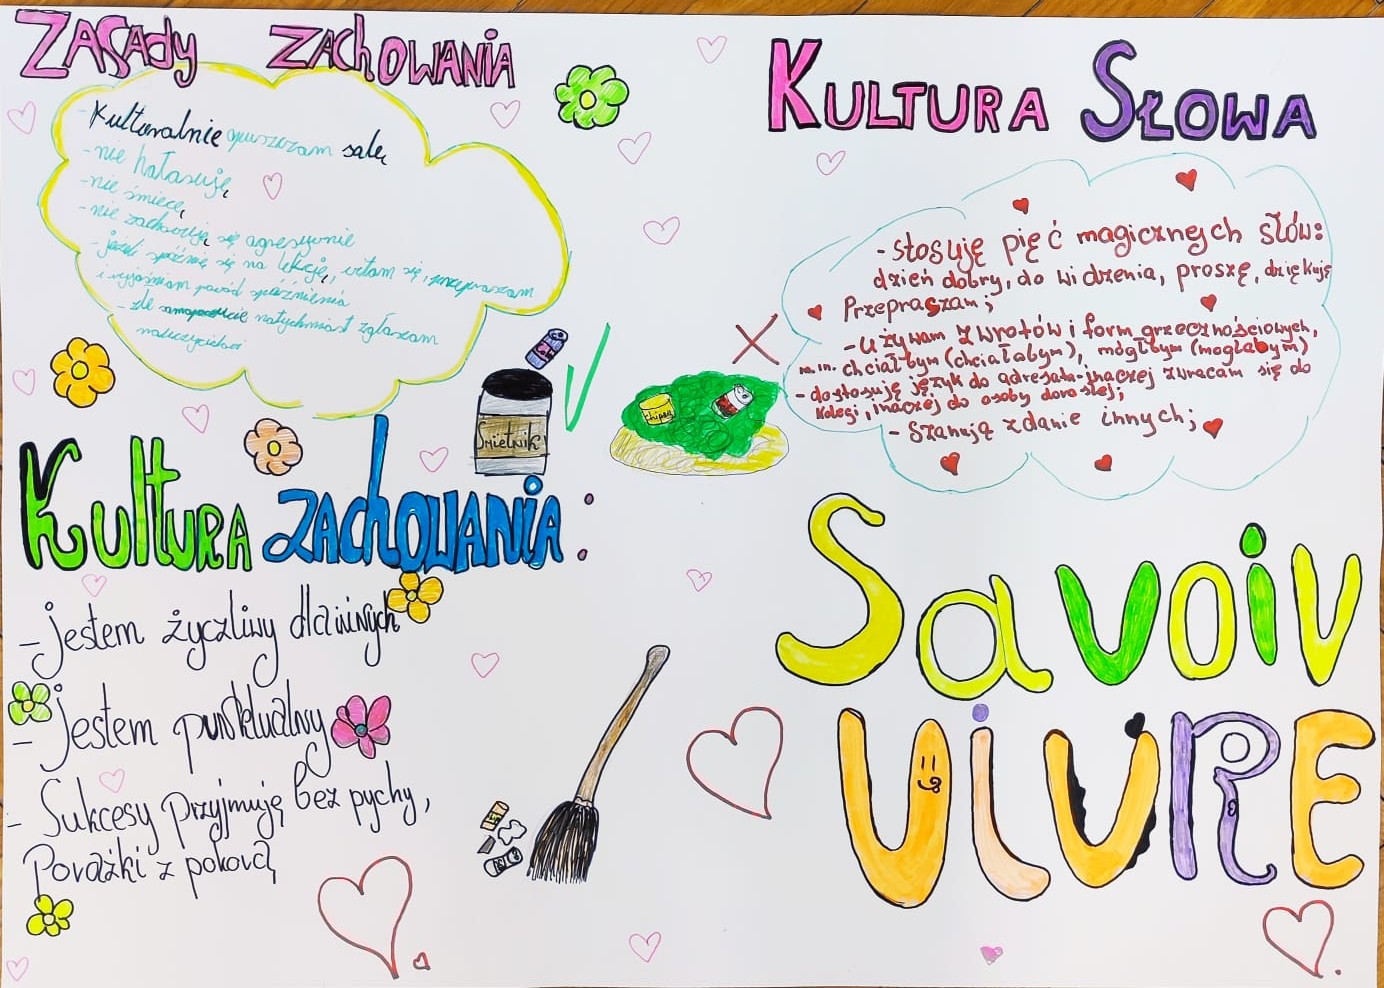 ZASADY ZACHOWANIA
- Kulturalnie opuszczam salę,
- nie hałasuję,
- nie śmiecę,
- nie zachowuję się agresywnie
- jeżeli spóźnię się na lekcję, witam się, przepraszam
i wyjaśniam powód spóźnienia
- złe samopoczucie natychmiast zgłaszam
nauczycielowi
KULTURA SŁOWA
- stosuję pięć magicznych słów:
dzień dobry, do widzenia, proszę, dziękuję
Przepraszam;
- używam zwrotów i form grzecznościowych,
m.in. chciałbym (chciałabym), mógłbym (mogłabym)
- dostosuję język do adresata - inaczej zwracam się do
kolegi, inaczej do osoby dorosłej;
- Szanują zdanie innych;
Śmietnik
chipsy
KULTURA ZACHOWANIA:
- jestem życzliwy dla innych
- Jestem punktualny
- Sukcesy przyjmuję bez pychy,
Porażki z pokorą
Savoiv
VIVRE